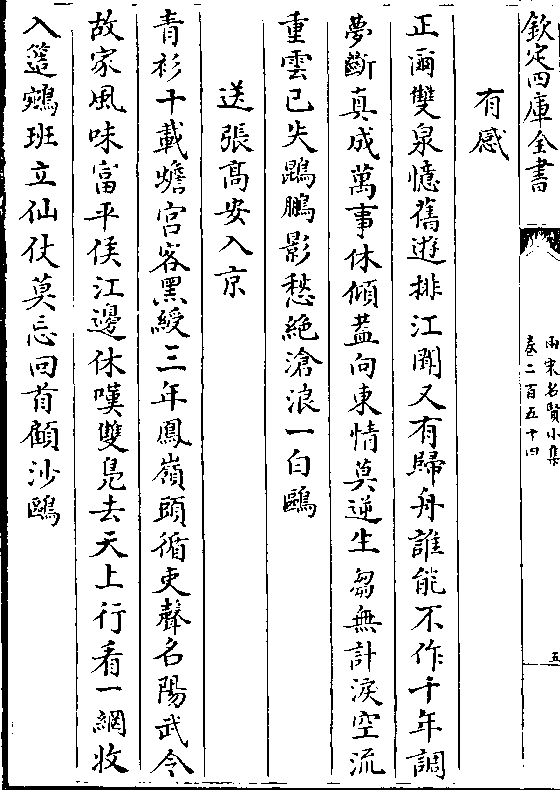 欽定四庫全書
兩宋名賢小集
卷二百五十四
五
有感
正爾雙泉憶舊遊排江閣又有歸舟誰能不作十年調
夢斷真成萬事休傾葢向東情莫逆生芻無計淚空流
重雲已失鵾鵬影愁絶滄浪一白鷗
送張髙安入京
青衫十載蟾宮客黑綬三年鳳嶺頭循吏聲名陽武令
故家風味富平侯江邊休嘆雙鳧去天上行看一網收
入簉鵷班立仙仗莫忘回首顧沙鷗